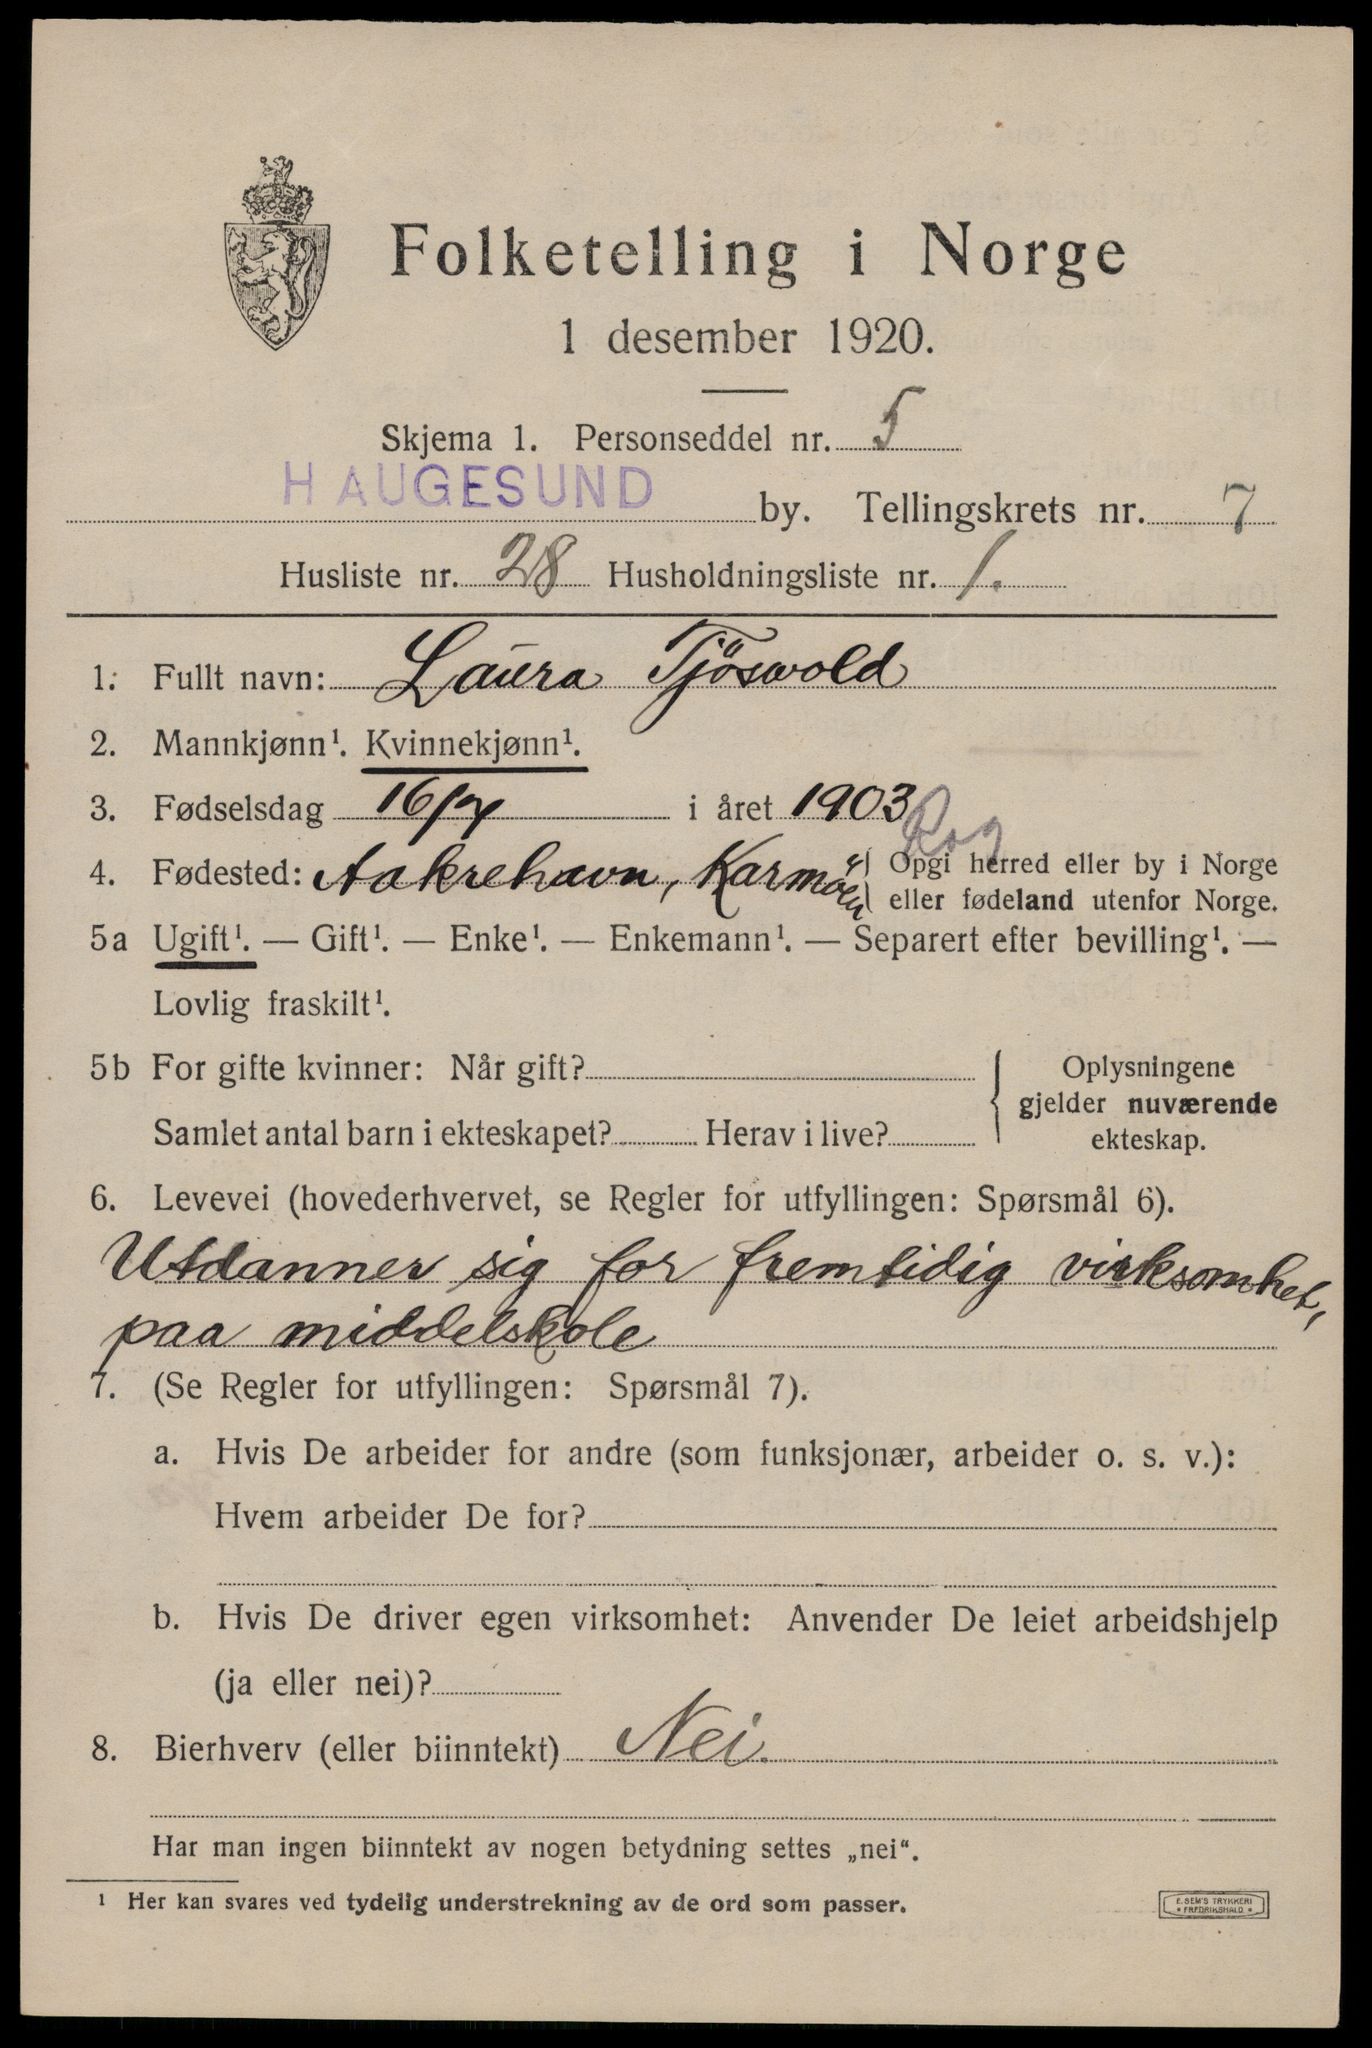 Folketelling i Norge
1 desember 1920.
Skjema 1. Personseddel nr. 5
HAUGESUND by. Tellingskrets nr. 7
Husliste nr. 28 Husholdningsliste nr. 1.
1. Fullt navn: Laura Tjöswold
2. Mannkjønn¹. Kvinnekjønn¹.
3. Fødselsdag 16/7 i året 1903
Rog
4. Fødested: Aakrehavn, Karmöen Opgi herred eller by i Norge
eller fødeland utenfor Norge.
5a Ugift¹. — Gift¹. — Enke¹. — Enkemann¹. — Separert efter bevilling¹. —
Lovlig fraskilt¹.
5b For gifte kvinner: Når gift?
Samlet antal barn i ekteskapet? Herav i live?
Oplysningene
gjelder nuværende
ekteskap.
6. Levevei (hovederhvervet, se Regler for utfyllingen: Spørsmål 6).
Utdanner sig for fremtidig virksomhet,
paa middelskole
7. (Se Regler for utfyllingen: Spørsmål 7).
a. Hvis De arbeider for andre (som funksjonær, arbeider o. s. v.):
Hvem arbeider De for?
b. Hvis De driver egen virksomhet: Anvender De leiet arbeidshjelp
(ja eller nei)?
8. Bierhverv (eller biinntekt) Nei.
Har man ingen biinntekt av nogen betydning settes „nei“.
¹ Her kan svares ved tydelig understrekning av de ord som passer.
E. SEM'S TRYKKERI
FREDRIKSHALD